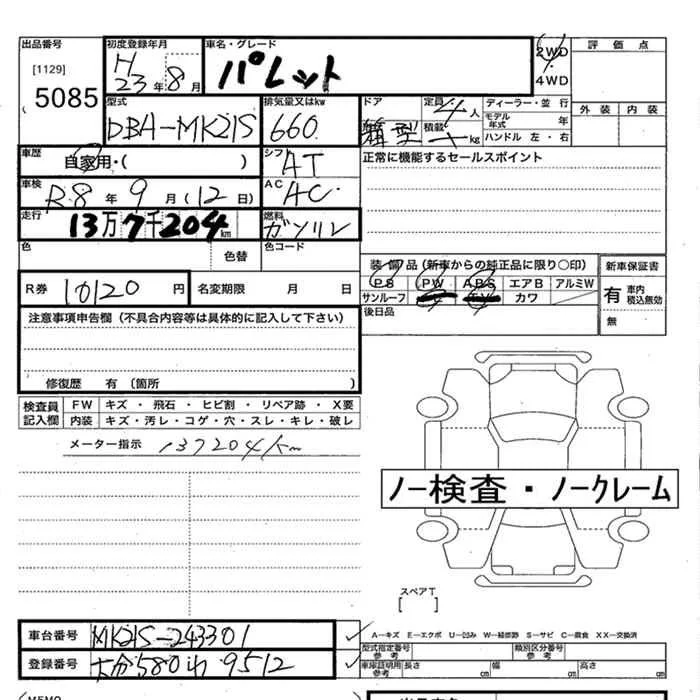 出品番号 初度登録年月 車名・グレード
[1129]
5085
H 23年 8月 パレット
2WD
4WD
評価点
外装 内装
型式 排気量又はkw ドア 定員 4人 ディーラー・並行
DBA-MK21S 660. 箱型 積載 kg モデル年式 年
ハンドル 左・右
車歴 自家用・( ) シフト AT
正常に機能するセールスポイント
車検 R8年 9月(12日) AC AC
走行 13万7千204km 燃料 ガソリン
色 色替 色コード
装備品(新車からの純正品に限り○印) 新車保証書
PS PW ABS エアB アルミW
サンルーフ カワ
有 車内 積込無効
無
後日品
R券 10120円 名変期限 月 日
注意事項申告欄(不具合内容等は具体的に記入して下さい)
修復歴 有(箇所 )
検査員記入欄 FW キズ・飛石・ヒビ割・リペア跡・X要
内装 キズ・汚レ・コゲ・穴・スレ・キレ・破レ
メーター指示 137204km
ノー検査・ノークレーム
スペアT
[ ]
車台番号 MK21S-243301
登録番号 大分580 9512
A—キズ E—エクボ U—凹み W—補修跡 S—サビ C—腐食 XX—交換済
型式指定番号 参考 類別区分番号 参考
車庫証明用 参考 長さ cm 幅 cm 高さ cm
MEMO